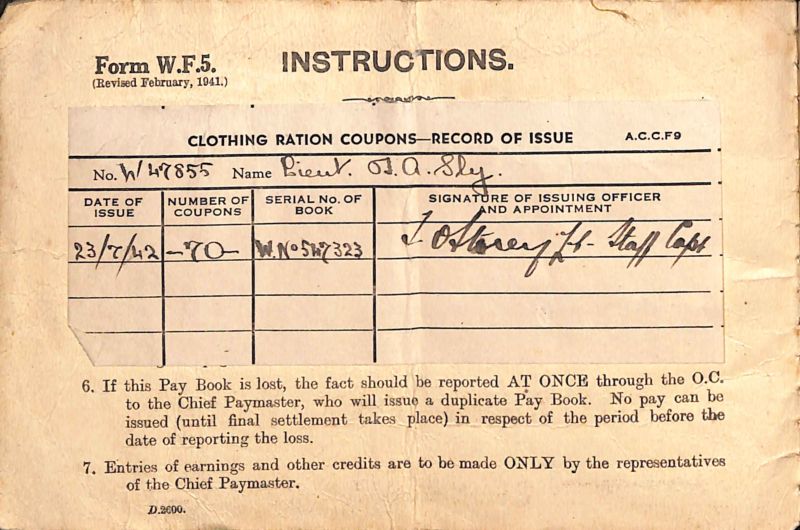 Form W.F.5.
(Revised February, 1941.)
INSTRUCTIONS.
CLOTHING RATION COUPONS—RECORD OF ISSUE A.C.C.F9
No. W/47855 Name Lieut. A. Sly.
DATE OF ISSUE NUMBER OF COUPONS SERIAL No. OF BOOK SIGNATURE OF ISSUING OFFICER AND APPOINTMENT
23/7/42 -70- W.No 547323 Storey Lt - Staff Capt
6. If this Pay Book is lost, the fact should be reported AT ONCE through the O.C.
to the Chief Paymaster, who will issue a duplicate Pay Book. No pay can be
issued (until final settlement takes place) in respect of the period before the
date of reporting the loss.
7. Entries of earnings and other credits are to be made ONLY by the representatives
of the Chief Paymaster.
D.2690.